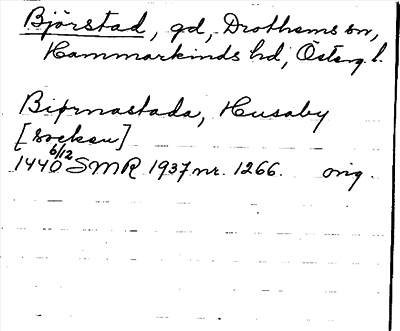 Björstad, gd, Drothems sn,
Hammarkinds hd, Österg. l.
Biørnastada, Husaby
[socken]
1440 6/12 SMR 1937 nr. 1266. orig.